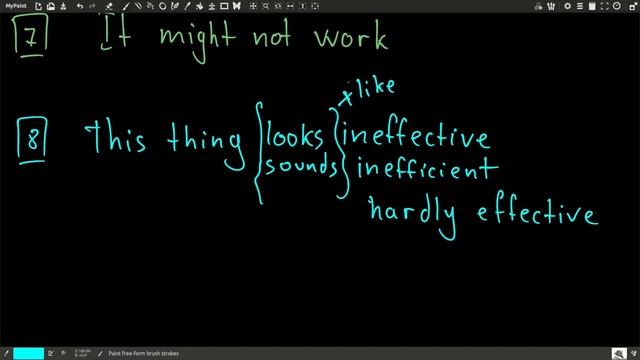 MyPaint
7 It might not work
x like
8 This thing { looks } ineffective
sounds inefficient
hardly effective
Paint free-form brush strokes